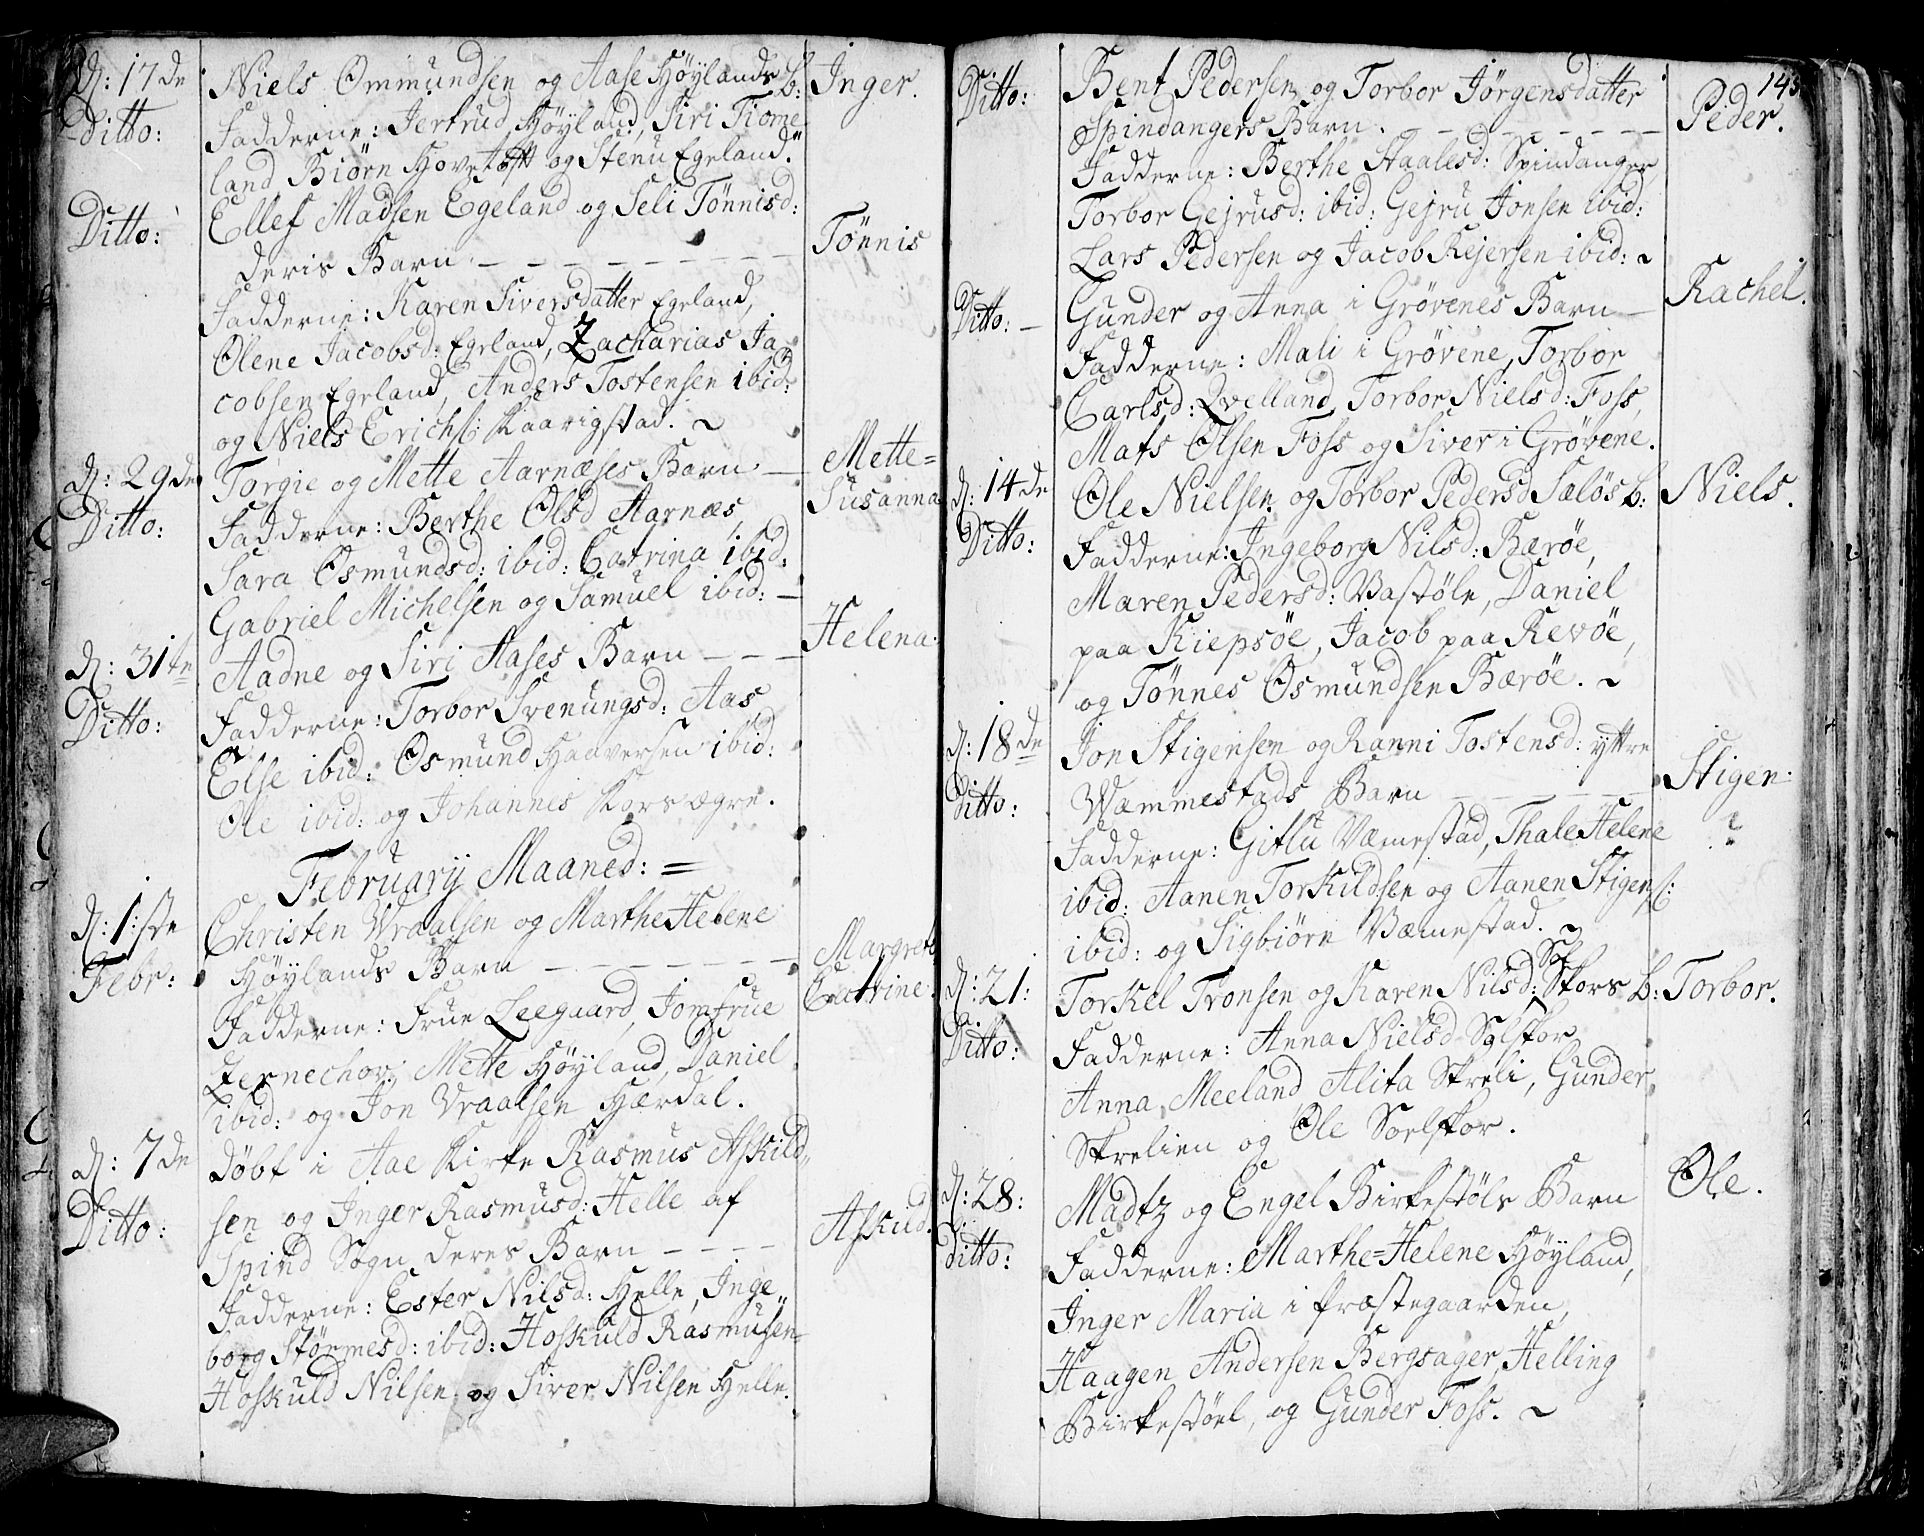 d: 17de Niels Ommundsen og Aase Höylands b: Inger.
Ditto: Fadderne: Jertrud Höyland, Siri Tiome
land Biörn Hovetoft og Stenu Egeland.
Ditto: Ellef Madsen Egeland og Seli Tönnisd: Tönnis
deris Barn. — — — — — — — — —
Fadderne: Karen Siversdatter Egeland,
Olene Jacobsd: Egeland, Zacharias Ja
cobsen Egeland, Anders Tostensen ibid:
og Niels Erichs: Kaarigstad. ~
d: 29de Torgie og Mette Aarnæses Barn — Mette=
Ditto: Fadderne: Berthe Olsd Aarnæs, Susanna
Sara Osmundsd: ibid: Catrina ibid:
Gabriel Michelsen og Samuel ibid: —
d: 31te Aadne og Siri Aases Barn — — — Helena.
Ditto: Fadderne: Torbor Svenungsd: Aas
Else ibid: Osmund Haaversen ibid:
Ole ibid: og Johannes Korsægre.
February Maaned: =
d: 1:ste Christen Wraalsen og Marthe Helene
Febr: Höylands Barn — — — — — — — Margrete
Fadderne: Frue Leegaard, Jomfrue Catrine.
Zernechov, Mette Höyland, Daniel
ibid: og Jon Vraalsen Hærdal.
d: 7de Döbt i Aae Kirke Rasmus Askild„
Ditto: sen og Inger Rasmusd: Helle af Askild.
Spind Sogn deres Barn — — — —
Fadderne: Ester Nilsd: Helle, Inge„
borg Störmesd: ibid: Hoskuld Rasmusen
Hoskuld Nilsen og Siver Nilsen Helle.
145
Ditto: Bent Pedersen og Torbor Jörgensdatter Peder.
Spindangers Barn. — — — — — — —
Fadderne: Berthe Staalesd: Spindanger
Torbor Gejrusd: ibid: Gejru Jonsen ibid:
Lars Pedersen og Jacob Rejersen ibid: ~
Ditto: — Gunder og Anna i Grövenes Barn — Rachel.
Fadderne: Mali i Grövene, Torbor
Carlsd: Qvelland, Torbor Nielsd: Foss,
Mats Olsen Foss og Siver i Grövene.
d: 14de Ole Nielsen og Torbor Pedersd Sælös b: Niels.
Ditto: Fadderne: Ingeborg Nilsd: Bæröe,
Maren Pedersd: Vastöle, Daniel
paa Kiepsöe, Jacob paa Revöe,
og Tönnes Osmundsen Bæröe. ~
d: 18de Jon Stigensen og Ranni Tostensd: yttre
Ditto: Wæmmestads Barn — — — — — — Stigen.
Fadderne: Gitlu Væmestad, Thale Helene
ibid: Aanen Torkildsen og Aanen Stigens:
ibid: og Sigbiörn Væmestad. ~
d: 21: Torkel Tronsen og Karen Nilsd: Sol Skors b: Torbor.
Ditto: Fadderne: Anna Nielsd Solskor
Anna Meeland Alita Skreli, Gunder
Skrelien og Ole Soelskor.
d: 28: Madtz og Engel Birkestöls Barn Ole.
ditto: Fadderne: Marthe=Helene Höyland,
Inger Maria i Præstegaarden,
Haagen Andersen Bergsager, Helling
Birkestöel, og Gunder Foss. ~